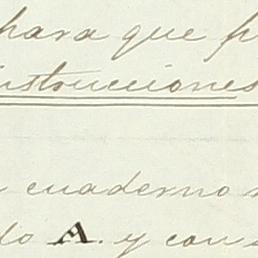 para que p
instrucciones
cuaderno
do A. y con